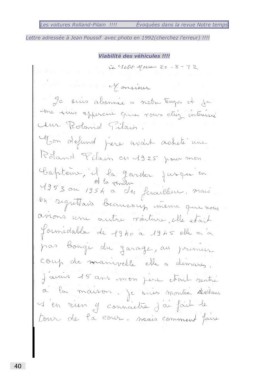 Les voitures Rolland-Pilain !!!! Evoquées dans la revue Notre temps
Lettre adressée à Jean Poussif avec photo en 1992(cherchez l'erreur) !!!!
Viabilité des véhicules !!!!
Monsieur
Je suis abonnée à notre temps et je
me suis aperçue que vous étiez intéressé
sur Roland Pilain.
Mon défunt père avait acheté une
Roland Pilain en 1925 pour mon
baptême, il la garder jusque en
et la vendu
1953 ou 1954 à de ferrailleur, mais
la regrettais beaucoup, même que nous
avions une autre voiture, elle était
formidable de 1940 à 1945 elle n'a
pas bougé du garage, au premier
coup de manivelle elle a démarré,
j'avais 15 ans mon père était
à la maison. je suis
et ça rien y connaître j'ai fait le
tour de la cour. mais comment faire
40